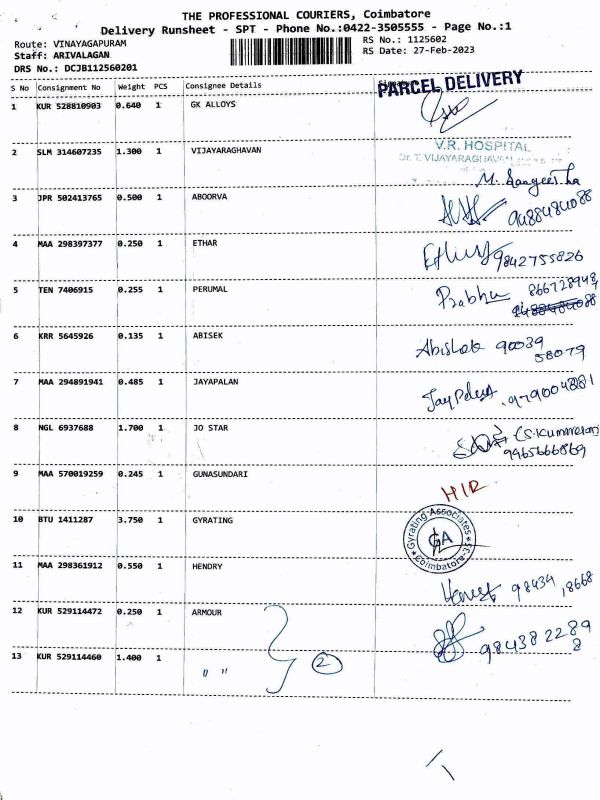 THE PROFESSIONAL COURIERS, Coimbatore
Delivery Runsheet - SPT - Phone No.:0422-3505555 - Page No.:1
Route: VINAYAGAPURAM RS No.: 1125602
Staff: ARIVALAGAN RS Date: 27-Feb-2023
DRS No.: DCJB112560201
S No Consignment No Weight PCS Consignee Details Signature
PARCEL DELIVERY
1 KUR 528810903 0.640 1 GK ALLOYS
V.R. HOSPITAL
Dr. T. VIJAYARAGHAVAN
2 SLM 314607235 1.300 1 VIJAYARAGHAVAN
M. Sangeetha
3 JPR 502413765 0.500 1 ABOORVA
9488484088
4 MAA 298397377 0.250 1 ETHAR
9842755826
5 TEN 7406915 0.255 1 PERUMAL
Prabhu 866728948
9488484088
6 KRR 5645926 0.135 1 ABISEK
Abishek 90039
58079
7 MAA 294891941 0.485 1 JAYAPALAN
8 NGL 6937688 1.700 1 JO STAR
(S.Kumaresan)
9965666869
9 MAA 570019259 0.245 1 GUNASUNDARI
HIR
10 BTU 1411287 3.750 1 GYRATING
Gyrating Associates
GA
Coimbatore-35
11 MAA 298361912 0.550 1 HENDRY
98434 18668
12 KUR 529114472 0.250 1 ARMOUR
984382289
8
13 KUR 529114460 1.400 1 " " 2